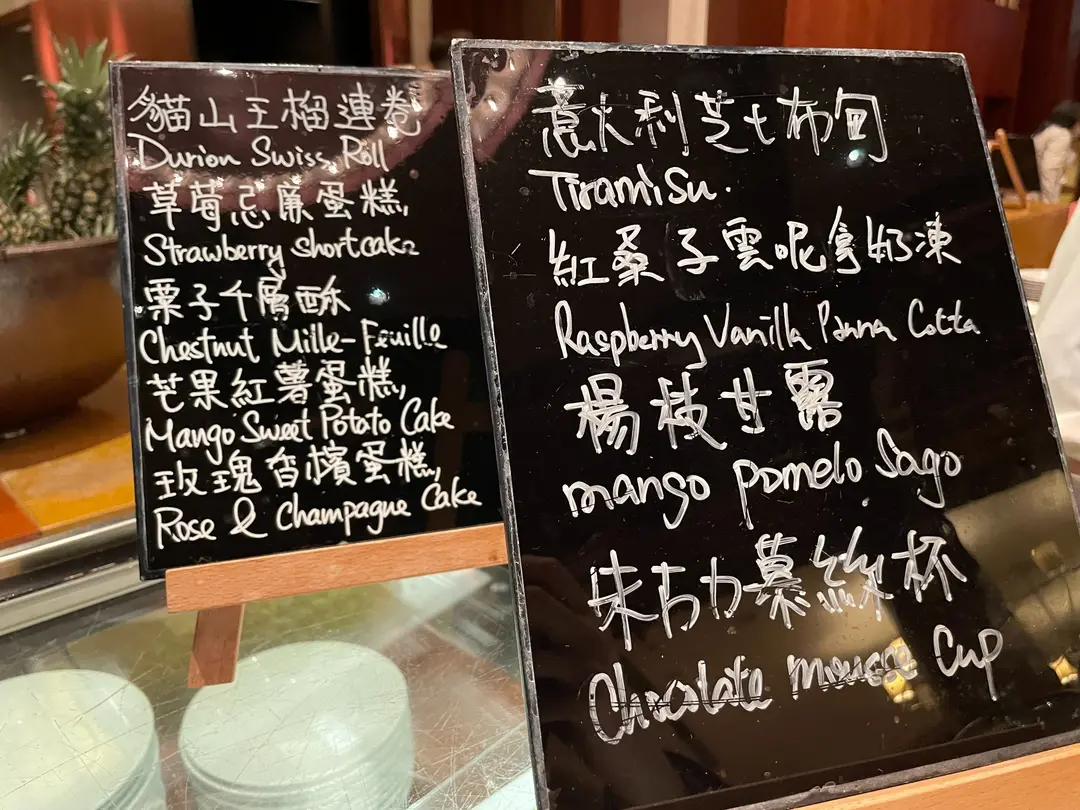 貓山王榴連卷
Durion Swiss Roll
草莓忌廉蛋糕
Strawberry shortcake
栗子千層酥
Chestnut Mille-Feuille
芒果紅薯蛋糕
Mango Sweet Potato Cake
玫瑰香檳蛋糕
Rose & Champagne Cake
意大利芝士布甸
Tiramisu.
紅桑子雲呢拿奶凍
Raspberry Vanilla Panna Cotta
楊枝甘露
mango pomelo Sago
朱古力慕絲杯
Chocolate mousse Cup